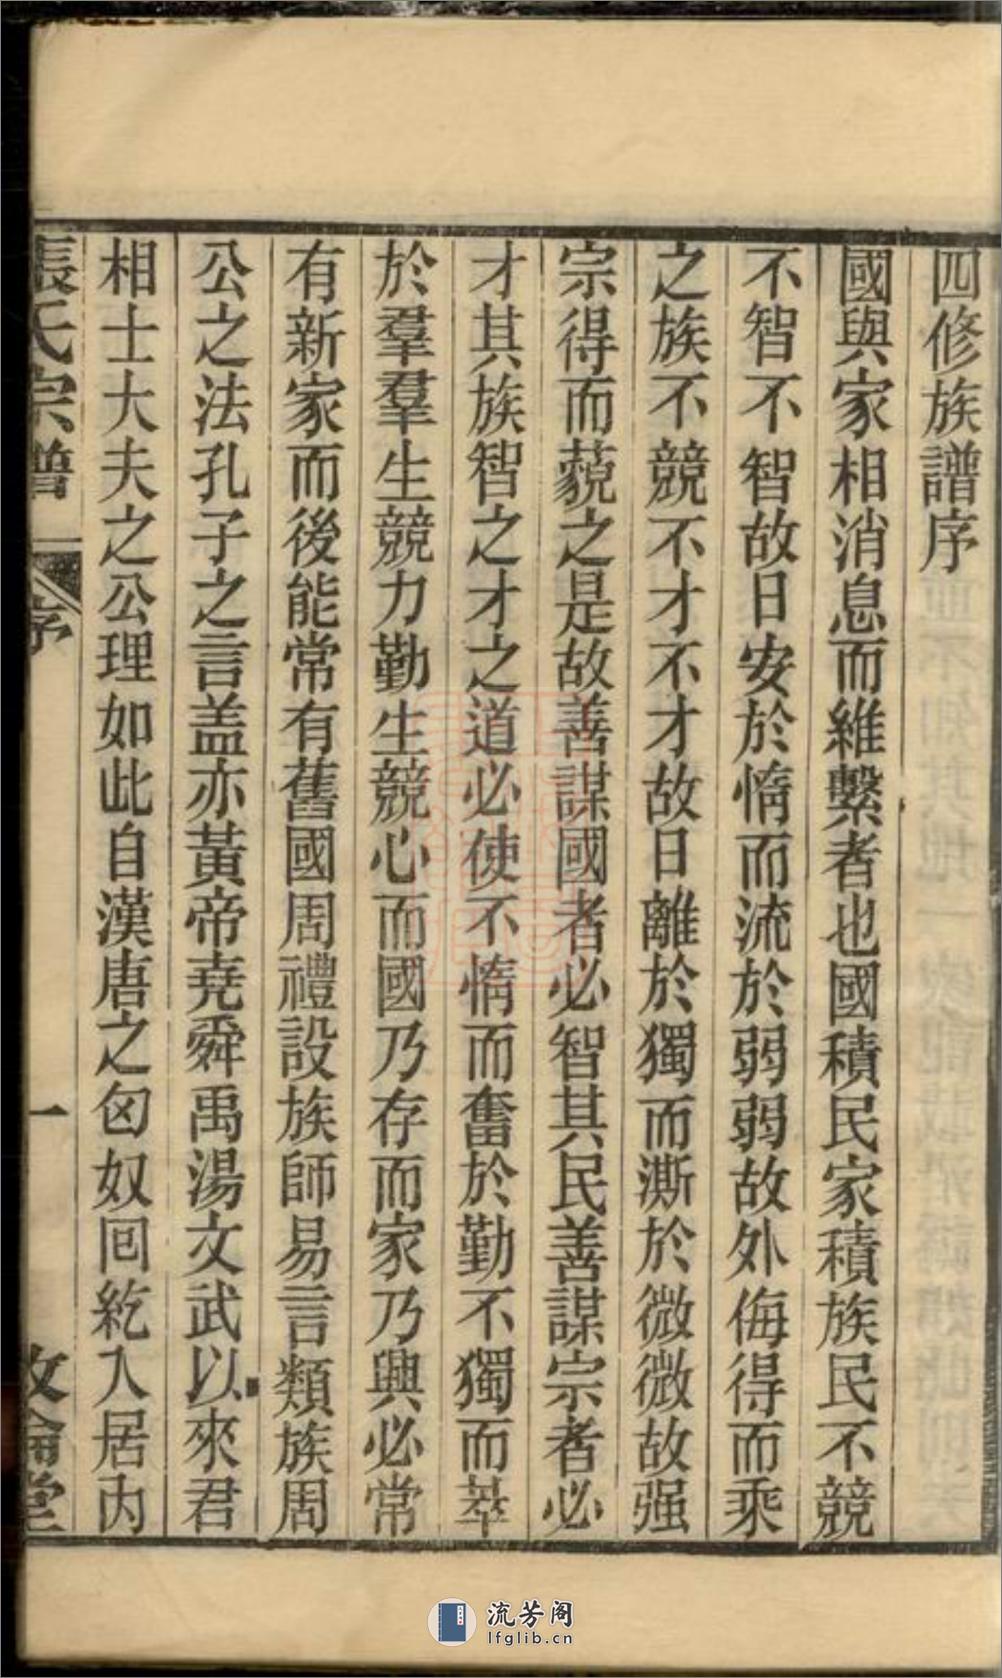 四修族譜序
國與家相消息而維繫者也國積民家積族民不競
不智不智故日安於惰而流於弱弱故外侮得而乘
之族不競不才不才故日離於獨而澌於微微故强
宗得而藐之是故善謀國者必智其民善謀宗者必
才其族智之才之道必使不惰而奮於勤不獨而萃
於羣羣生競力勤生競心而國乃存而家乃興必常
有新家而後能常有舊國周禮設族師易言類族周
公之法孔子之言盖亦黃帝堯舜禹湯文武以來君
相士大夫之公理如此自漢唐之匈奴回紇入居內
張氏宗譜 序 一 敘倫堂
流芳阁
lfglib.cn